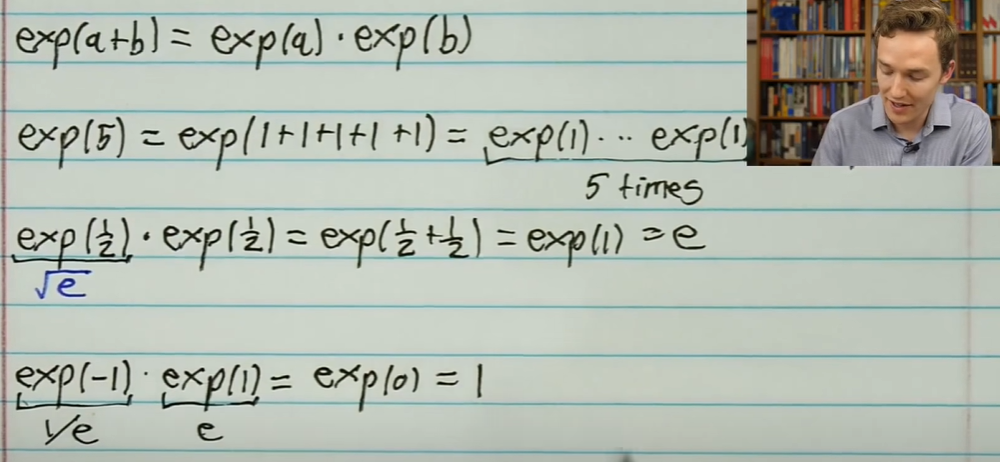 exp(a+b) = exp(a) · exp(b)
exp(5) = exp(1+1+1+1+1) = exp(1) · ·· exp(1)
5 times
exp(½) · exp(½) = exp(½+½) = exp(1) = e
√e
exp(-1) · exp(1) = exp(0) = 1
1/e e